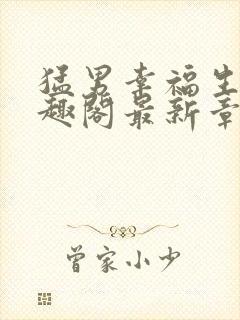 猛男幸福生
趣阁最新章
曾家小少